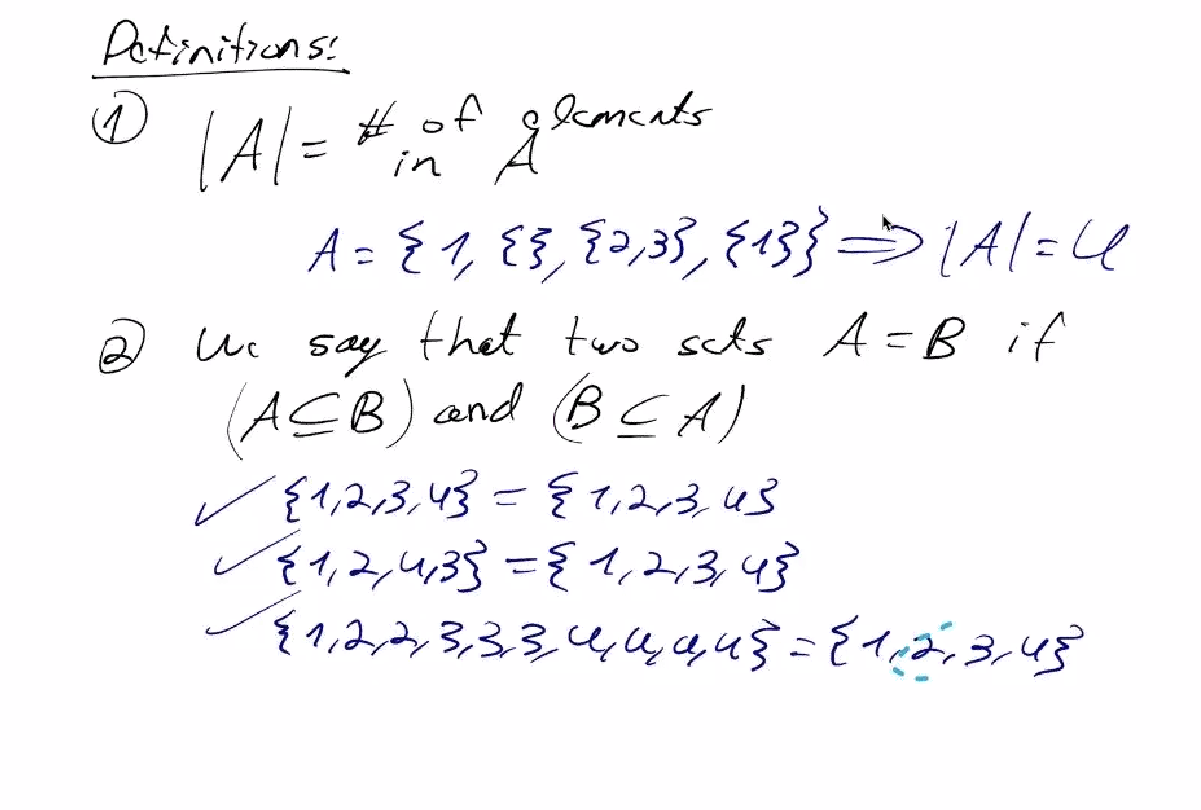 Definitions:
① |A| = # of elements
in A
A = {1, {}, {2,3}, {1}} ⟹ |A| = 4
② We say that two sets A = B if
(A ⊆ B) and (B ⊆ A)
✓ {1,2,3,4} = {1,2,3,4}
✓ {1,2,4,3} = {1,2,3,4}
✓ {1,2,2,3,3,3,4,4,4,4} = {1,2,3,4}